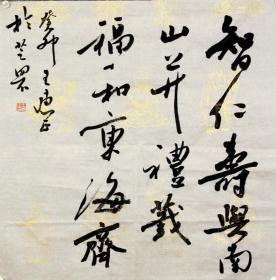 智仁壽與南
山并禮義
福和東海齊
癸卯王正
於芝罘